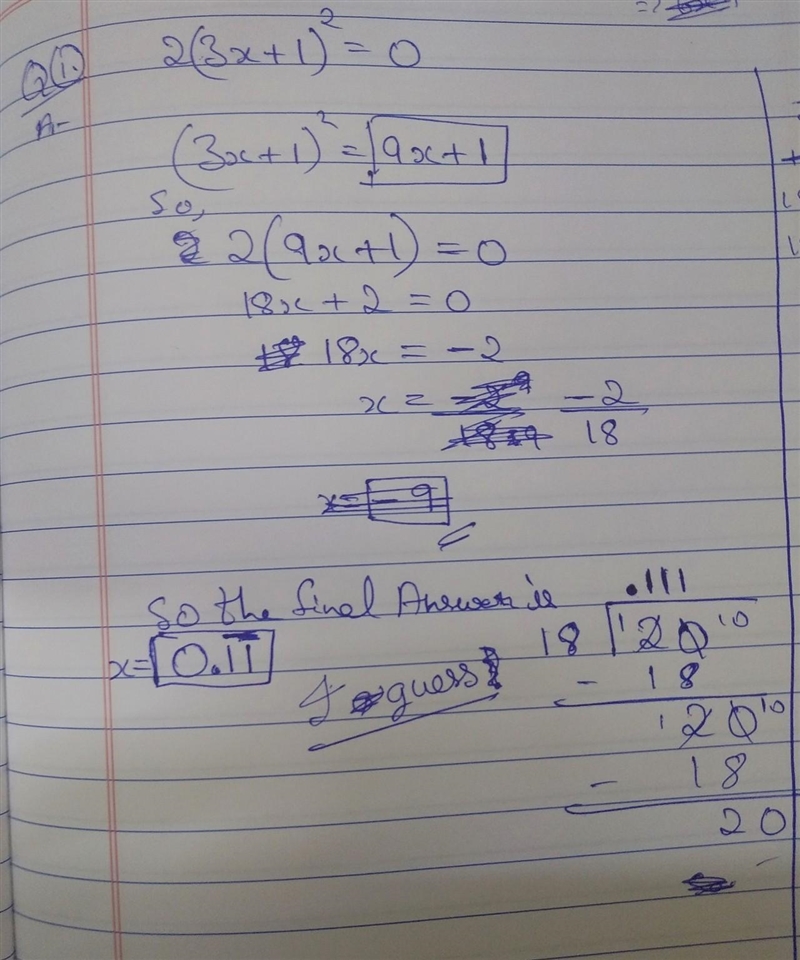 Q(1.) 2(3x+1)² = 0
A-
(3x+1)² = 9x+1
So,
2(9x+1) = 0
18x + 2 = 0
18x = -2
x = -2/18
x = -9
So the final Answer is
x = 0.11̅
I guess
.111
18 ⟌ 20 10
- 18
20 10
- 18
20